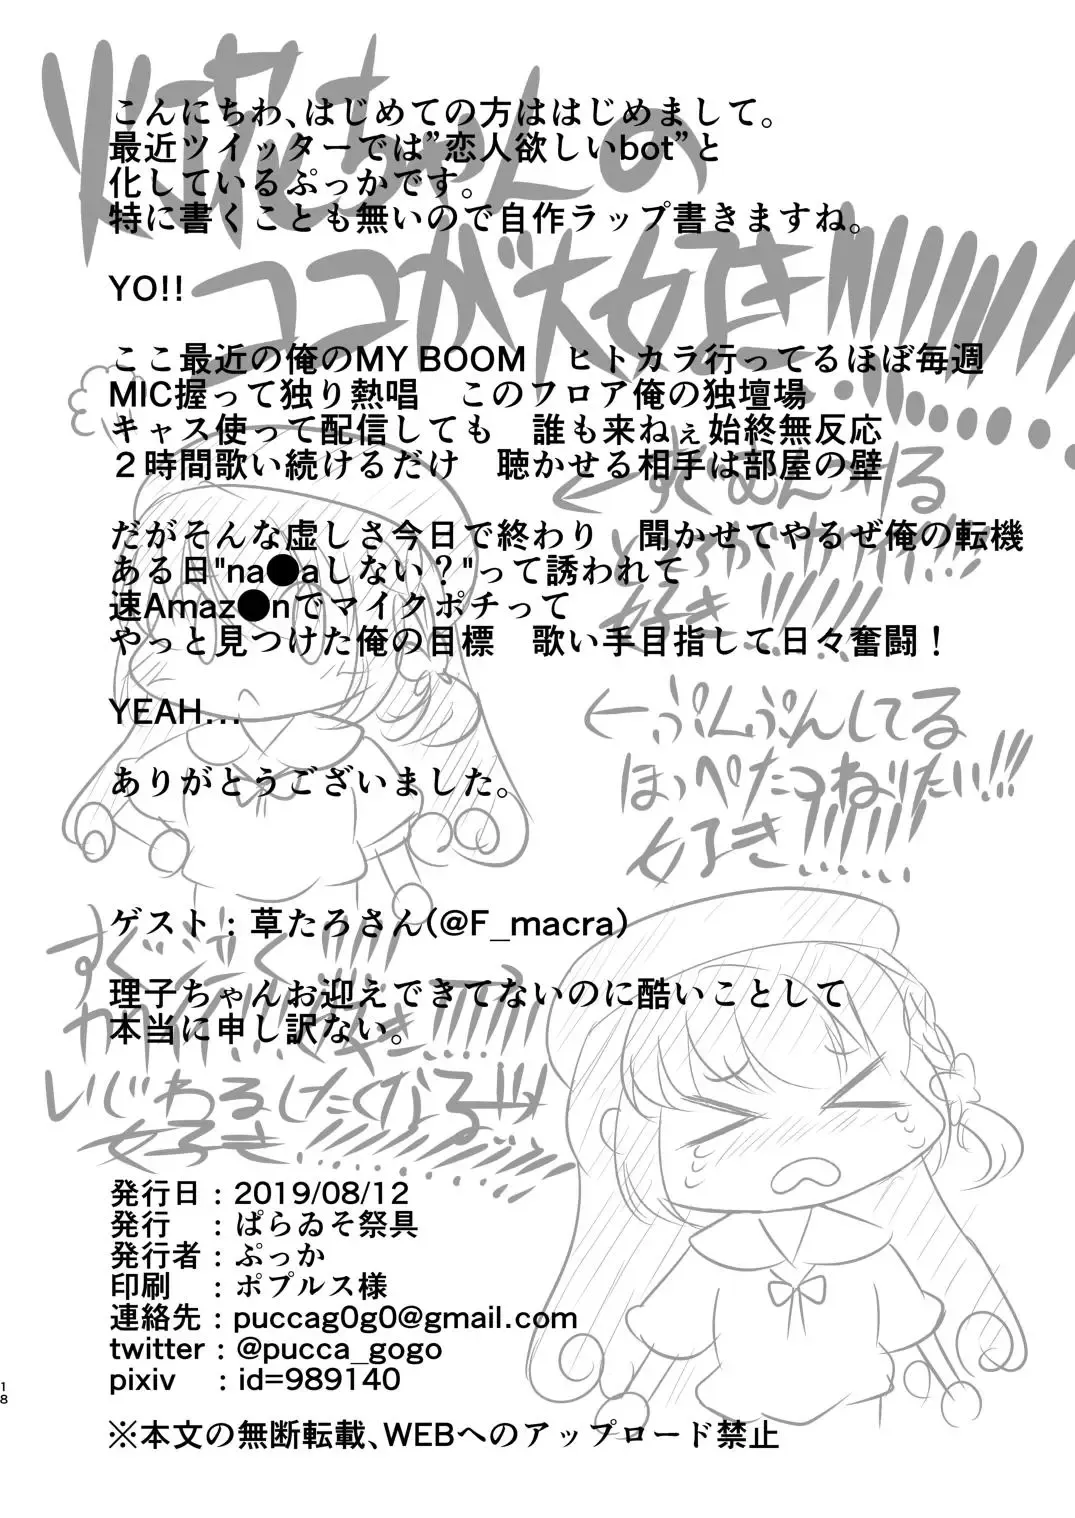 こんにちわ、はじめての方ははじめまして。
最近ツイッターでは”恋人欲しいbot”と
化しているぷっかです。
特に書くことも無いので自作ラップ書きますね。
YO!!
ここ最近の俺のMY BOOM　ヒトカラ行ってるほぼ毎週
MIC握って独り熱唱　このフロア俺の独壇場
キャス使って配信しても　誰も来ねぇ始終無反応
２時間歌い続けるだけ　聴かせる相手は部屋の壁
だがそんな虚しさ今日で終わり　聞かせてやるぜ俺の転機
ある日"na●aしない？"って誘われて
速Amaz●nでマイクポチって
やっと見つけた俺の目標　歌い手目指して日々奮闘！
YEAH...
ありがとうございました。
ゲスト：草たろさん(@F_macra)
理子ちゃんお迎えできてないのに酷いことして
本当に申し訳ない。
発行日：2019/08/12
発行　：ぱらゐそ祭具
発行者：ぷっか
印刷　：ポプルス様
連絡先：puccag0g0@gmail.com
twitter：@pucca_gogo
pixiv　：id=989140
※本文の無断転載、WEBへのアップロード禁止
ちゃんの
ココが大好き!!!!!!!!!
←ぷんぷんしてる
ほっぺたつねりたい!!!
好き!!!!!!
いじわるしたくなる!!!
好き
18